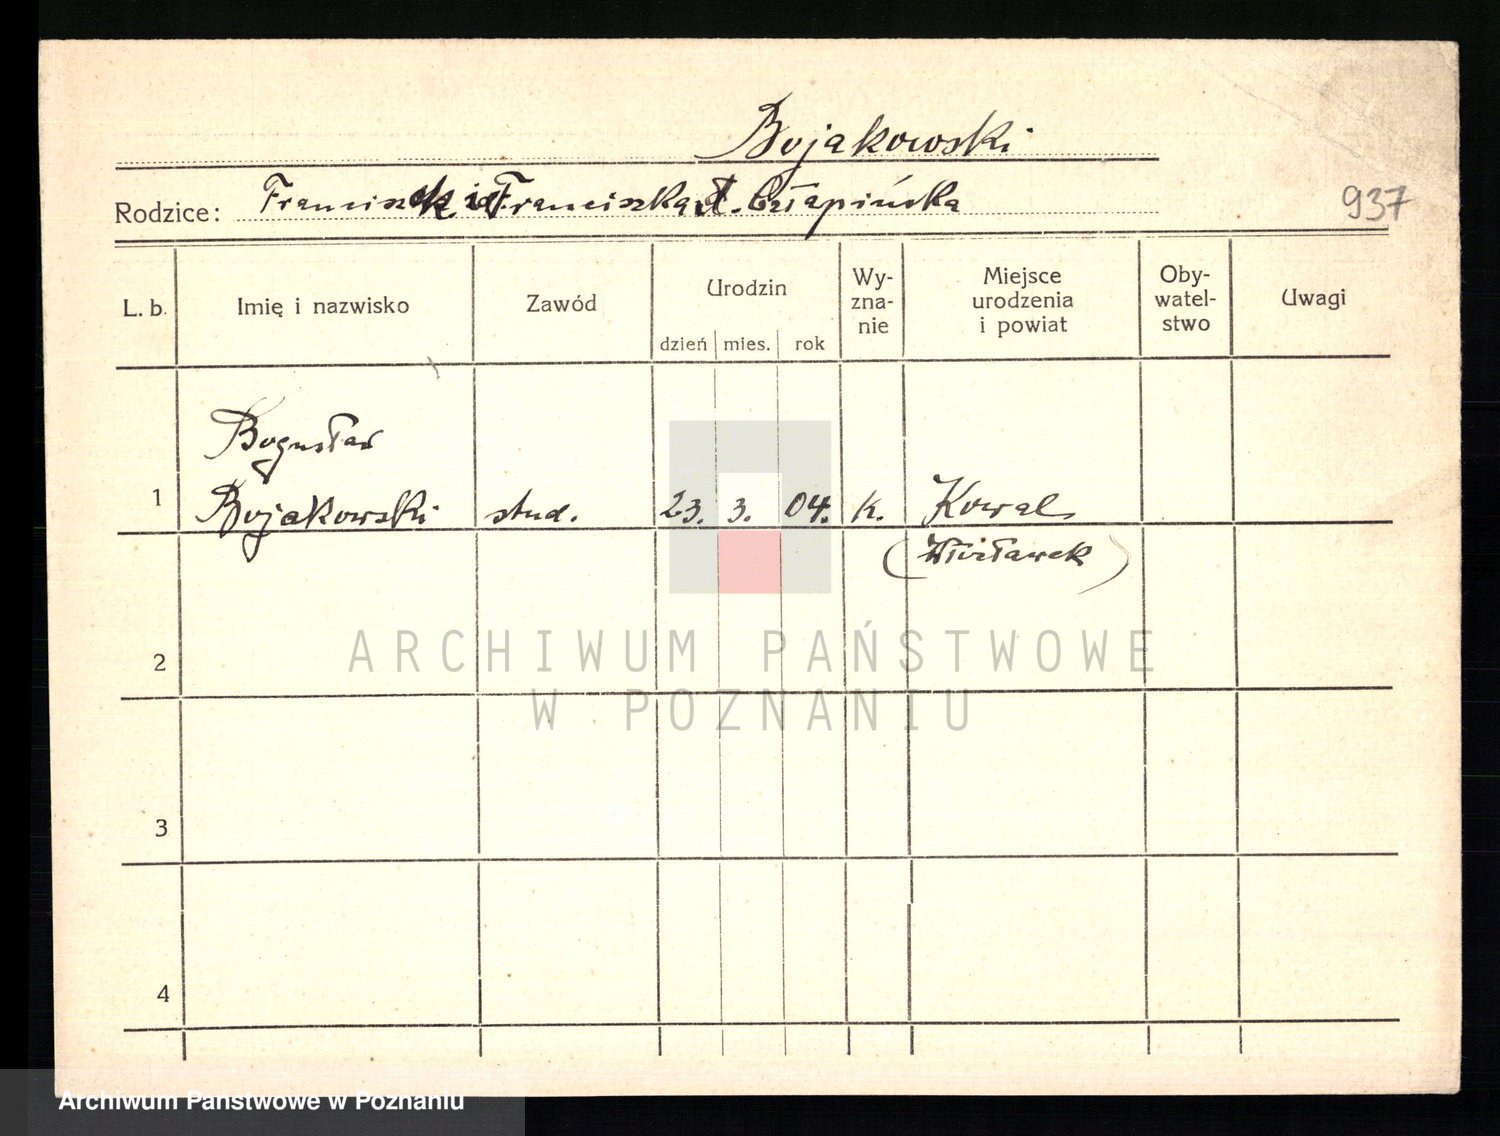 Bojakowski
Rodzice: Franciszek i Franciszka d. Człapińska
937
L. b. Imię i nazwisko Zawód Urodzin dzień mies. rok Wy-zna-nie Miejsce urodzenia i powiat Oby-watel-stwo Uwagi
Bogusław
1 Bojakowski stud. 23. 3. 04. k. Kowal
(Włocławek)
2
ARCHIWUM PAŃSTWOWE
W POZNANIU
3
4
Archiwum Państwowe w Poznaniu